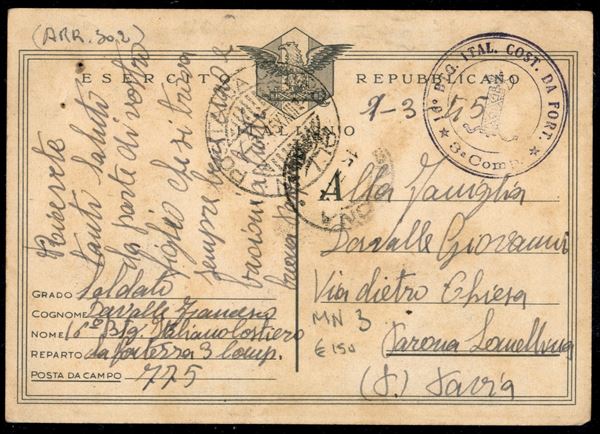 (ARR. 30.2)
ESERCITO REPUBBLICANO
ITALIANO
1-3 45
16° BTG. ITAL. COST. DA FORT.
★ 3ª Comp. ★
Ricevete
tanti saluti
da parte di vostro
figlio che si trova
sempre bene
bacioni a tutti
A
Alla Famiglia
Davalle Giovanni
Via dietro Chiesa
MN 3
€ 150
Lomellina
(P.) Pavia
GRADO Soldato
COGNOME Davalle
NOME 16° Btg. Italiano Costiero
REPARTO da fortezza 3 Comp.
POSTA DA CAMPO 775